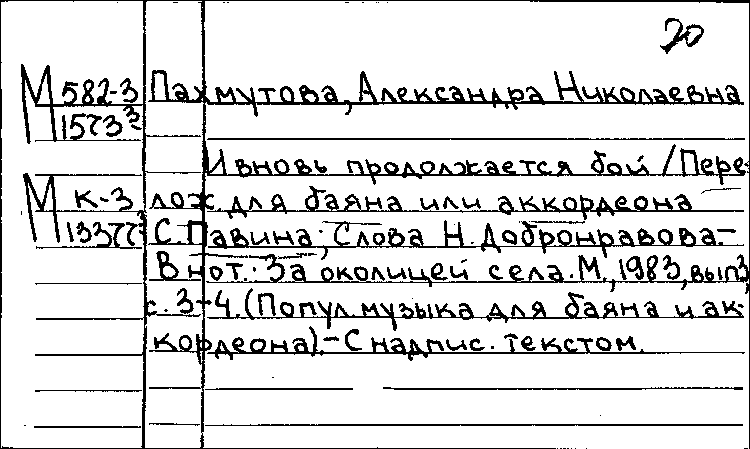 20
М 582-3 Пахмутова, Александра Николаевна
1573
И вновь продолжается бой / Пере-
М К-3 лож. для баяна или аккордеона
С. Павина; Слова Н. Добронравова.-
В нот.: За околицей села. М., 1983, вып 3,
с. 3-4. (Попул. музыка для баяна и ак-
кордеона).- С надпис. текстом.